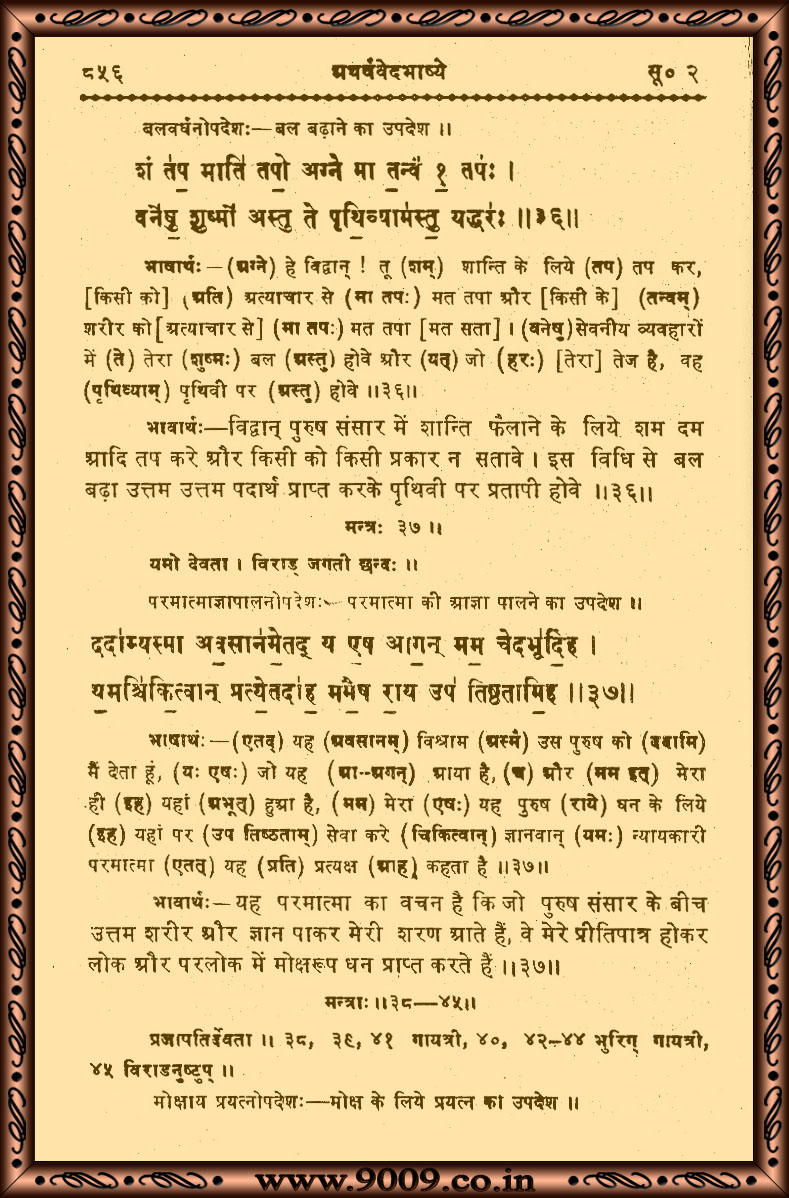 ८५६ अथर्ववेदभाष्ये सू० २
बलवर्धनोपदेशः—बल बढ़ाने का उपदेश ॥
शं त॑प॒ माति॑ तपो॒ अग्ने॒ मा त॒न्वं॑ १॒ तपः॑ ।
वने॑षु॒ शुष्मो॑ अस्तु ते पृथि॒व्याम॑स्तु॒ यद्धरः॑ ॥३६॥
भाषार्थः—(अग्ने) हे विद्वान् ! तू (शम्) शान्ति के लिये (तप) तप कर,
[किसी को] (अति) अत्याचार से (मा तपः) मत तपा और [किसी के] (तन्वम्)
शरीर को [अत्याचार से] (मा तपः) मत तपा [मत सता] । (वनेषु) सेवनीय व्यवहारों
में (ते) तेरा (शुष्मः) बल (अस्तु) होवे और (यत्) जो (हरः) [तेरा] तेज है, वह
(पृथिव्याम्) पृथिवी पर (अस्तु) होवे ॥३६॥
भावार्थः—विद्वान् पुरुष संसार में शान्ति फैलाने के लिये शम दम
आदि तप करे और किसी को किसी प्रकार न सतावे । इस विधि से बल
बढ़ा उत्तम उत्तम पदार्थ प्राप्त करके पृथिवी पर प्रतापी होवे ॥३६॥
मन्त्रः ३७ ॥
यमो देवता । विराड् जगती छन्दः ॥
परमात्माज्ञापालनोपदेशः— परमात्मा की आज्ञा पालने का उपदेश ॥
ददा॑म्यस्मा अव॒सान॑मे॒तद् य ए॒ष आग॒न् मम॒ चेदभू॑दि॒ह ।
य॒मश्चि॑कि॒त्वान् प्रत्ये॒तदा॑ह॒ ममै॒ष रा॒य उप॑ तिष्ठतामि॒ह ॥३७॥
भाषार्थः—(एतत्) यह (अवसानम्) विश्राम (अस्मै) उस पुरुष को (ददामि)
मैं देता हूं, (यः एषः) जो यह (आ—अगन्) आया है, (च) और (मम इत्) मेरा
ही (इह) यहां (अभूत्) हुआ है, (मम) मेरा (एषः) यह पुरुष (राये) धन के लिये
(इह) यहां पर (उप तिष्ठताम्) सेवा करे (चिकित्वान्) ज्ञानवान् (यमः) न्यायकारी
परमात्मा (एतत्) यह (प्रति) प्रत्यक्ष (आह) कहता है ॥३७॥
भावार्थः—यह परमात्मा का वचन है कि जो पुरुष संसार के बीच
उत्तम शरीर और ज्ञान पाकर मेरी शरण आते हैं, वे मेरे प्रीतिपात्र होकर
लोक और परलोक में मोक्षरूप धन प्राप्त करते हैं ॥३७॥
मन्त्राः ॥३८—४५॥
प्रजापतिर्देवता ॥ ३८, ३९, ४१ गायत्री, ४०, ४२—४४ भुरिग् गायत्री,
४५ विराडनुष्टुप् ॥
मोक्षाय प्रयत्नोपदेशः—मोक्ष के लिये प्रयत्न का उपदेश ॥
www.9009.co.in